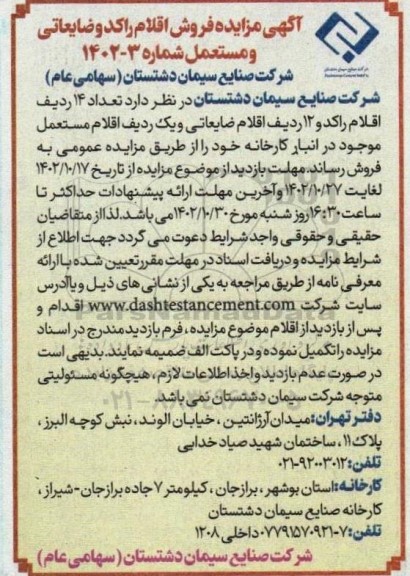 آگهی مزایده فروش اقلام راکد و ضایعاتی
و مستعمل شماره ۳-۱۴۰۲
شرکت صنایع سیمان دشتستان (سهامی عام)
شرکت صنایع سیمان دشتستان در نظر دارد تعداد ۱۴ ردیف
اقلام راکد و ۱۲ ردیف اقلام ضایعاتی و یک ردیف اقلام مستعمل
موجود در انبار کارخانه خود را از طریق مزایده عمومی به
فروش رساند. مهلت بازدید از موضوع مزایده از تاریخ ۱۴۰۲/۱۰/۱۷
لغایت ۱۴۰۲/۱۰/۲۷ و آخرین مهلت ارائه پیشنهادات حداکثر تا
ساعت ۱۶:۳۰ روز شنبه مورخ ۱۴۰۲/۱۰/۳۰ می باشد. لذا از متقاضیان
حقیقی و حقوقی واجد شرایط دعوت می گردد جهت اطلاع از
شرایط مزایده و دریافت اسناد در مهلت مقرر تعیین شده با ارائه
معرفی نامه از طریق مراجعه به یکی از نشانی های ذیل و یا آدرس
سایت شرکت www.dashtestancement.com اقدام و
پس از بازدید از اقلام موضوع مزایده، فرم بازدید مندرج در اسناد
مزایده را تکمیل نموده و در پاکت الف ضمیمه نمایند. بدیهی است
در صورت عدم بازدید و اخذ اطلاعات لازم، هیچگونه مسئولیتی
متوجه شرکت سیمان دشتستان نمی باشد.
دفتر تهران: میدان آرژانتین، خیابان الوند، نبش کوچه البرز،
پلاک ۱۱، ساختمان شهید صیاد خدایی
تلفن: ۹۲۰۰۳۰۱۲-۰۲۱
کارخانه: استان بوشهر، برازجان، کیلومتر ۷ جاده برازجان-شیراز،
کارخانه صنایع سیمان دشتستان
تلفن: ۷-۰۷۷۹۱۵۷۰۹۲۱ داخلی ۱۲۰۸
شرکت صنایع سیمان دشتستان (سهامی عام)